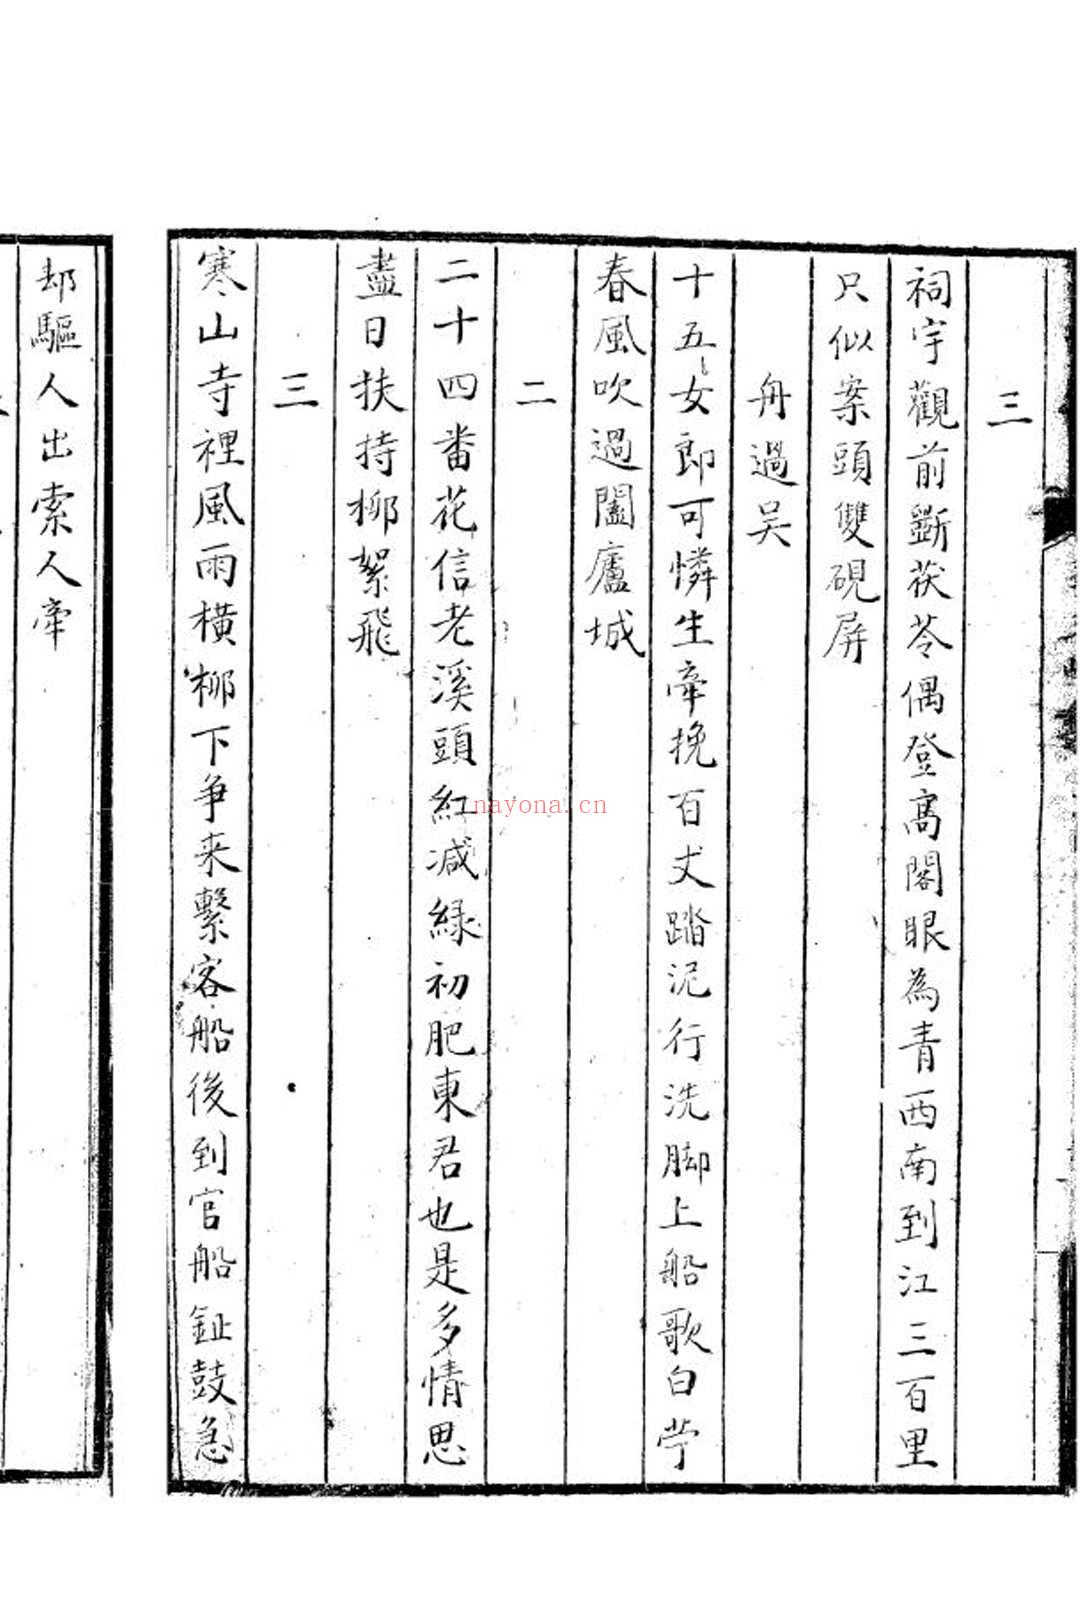 三
祠宇觀前斷茯苓偶登高閣眼為青西南到江三百里
只似案頭雙硯屏
舟過吳
十五女郎可憐生牽挽百丈踏泥行洗脚上船歌白苧
春風吹過闔廬城
二
二十四番花信老溪頭紅減綠初肥東君也是多情思
盡日扶持柳絮飛
三
寒山寺裡風雨橫柳下爭来繫客船後到官船鉦鼓急
却驅人出索人牽
nayona.cn